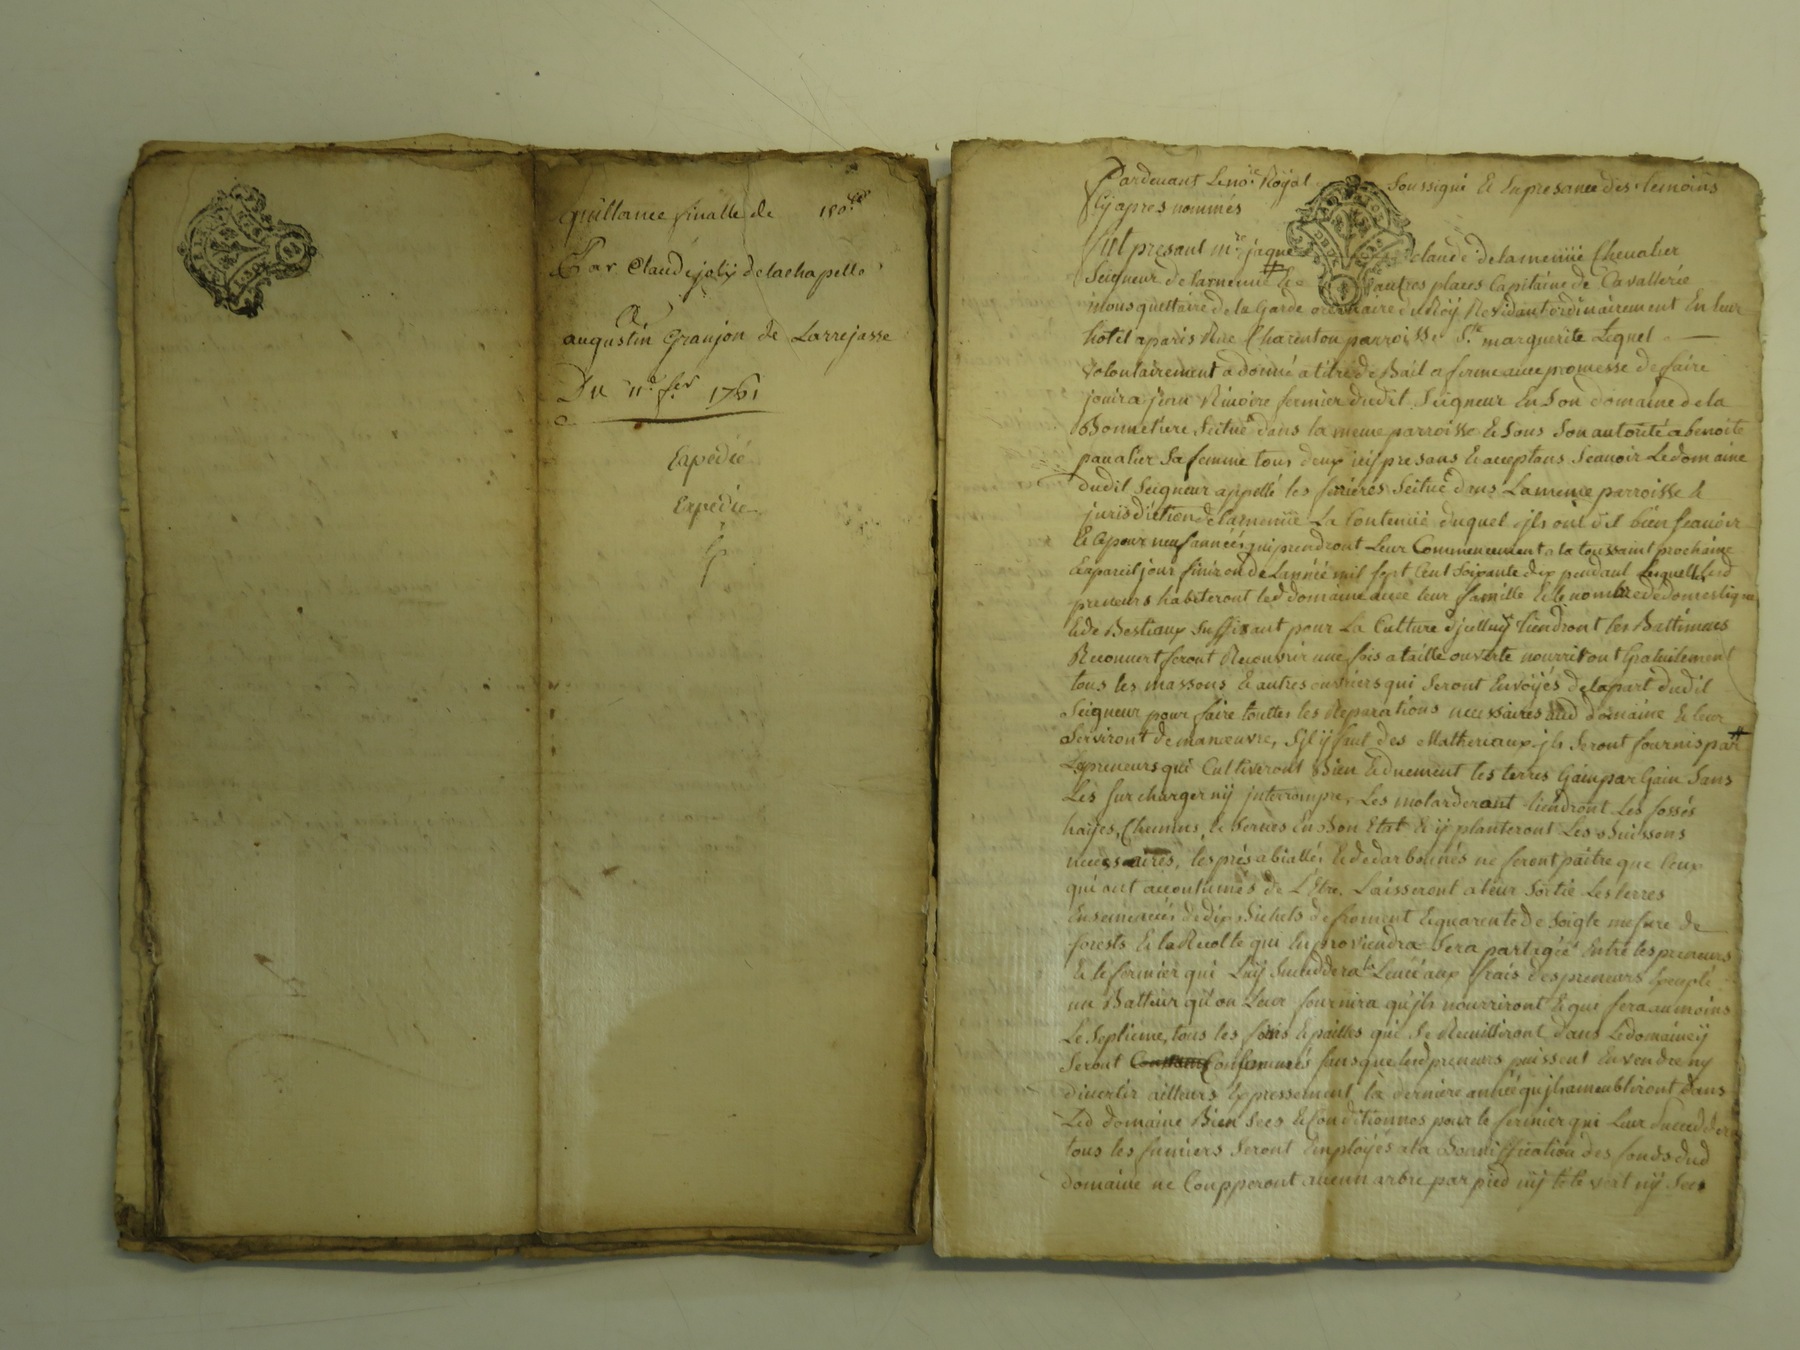 quittance finalle de 180#
Par Claude joly de la chapelle
A
augustin Granjon de Larrejasse
Du 11e fer 1761
Expédié
Expédie
Pardevant Le nore Royal soussigné Et En presance des temoins
Cy apres nommés
fut presant mre jaque claude delamenüe Chevalier
Seigneur de lamenüe & autres places Capitaine de Cavallerie
mousquettaire de la Garde ordinaire du Roy Residant ordinairement En leur
hotel a paris Rue Charenton parroisse Ste marguerite Lequel
volontairement a donné a titre de Bail a ferme avec promesse de faire
jouir a jean Rivoire fermier dudit Seigneur En Son domaine de la
Bonnetiere Scitué dans la meme parroisse & Sous Son autorité a benoite
pavalier Sa femme tous deux icy presans & acceptans Scavoir Le domaine
dudit Seigneur appellé les ferrieres Scitué dans La meme parroisse &
jurisdiction de lamenüe La Contenüe duquel ils ont dit bien scavoir
Et Ce pour neuf années qui prendront Leur Commencement a la toussaint prochaine
& a pareil jour finiront de L'année mil sept Cent Soixante dix pendant Lesquelles lesd
preneurs habiteront led domaine avec leur famille & le nombre de domestiques
& de Bestiaux Suffisant pour La Culture d'jcelluy tiendront les Battimens
Recouvert feront Recouvrir une fois a taille ouverte nourriront Gratuitement
tous les massons & autres ouvriers qui Seront Envoyés de la part dudit
Seigneur pour faire touttes les Reparations necessaires aud domaine & leur
Serviront de manœuvre, S'il y faut des Matheriaux ils Seront fournis par
Les preneurs qui Cultiveront Bien & dnement les terres Gain par Gain Sans
Les Surcharger ny jnterrompre, Les molarderont tiendront Les fossés
hayes, Chemins, & Serves En Bon Etat & y planteront Les Buissons
necessaires, les prés abiallés & dedarbonnés ne feront paitre que Ceux
qui ont accoutumés de L'Etre, Laisseront a leur Sortie Les terres
Ensemencées de dix Bichets de froment & quarente de Soigle mesure de
forests & la Recolte qui En proviendra Sera partagée Entre les preneurs
& le fermier qui Luy Succeddera Levée aux frais des preneurs Excepté
un Batteur qu'on Leur fournira qu'ils nourriront & qui sera au moins
Le Septieme, tous les foins & pailles qui Se Recuilliront dans Le domaine y
Seront Consummés sans que lesd preneurs puissent En vendre ny
divertir ailleurs Expressement la derniere année qu'ils ameubliront dans
Led domaine Bien Secs & Conditionnes pour le fermier qui Leur Succeddera
tous les fumiers Seront Employés a la Bonniffication des fonds dud
domaine ne Coupperont aucun arbre par pied ny tete vert ny Sec